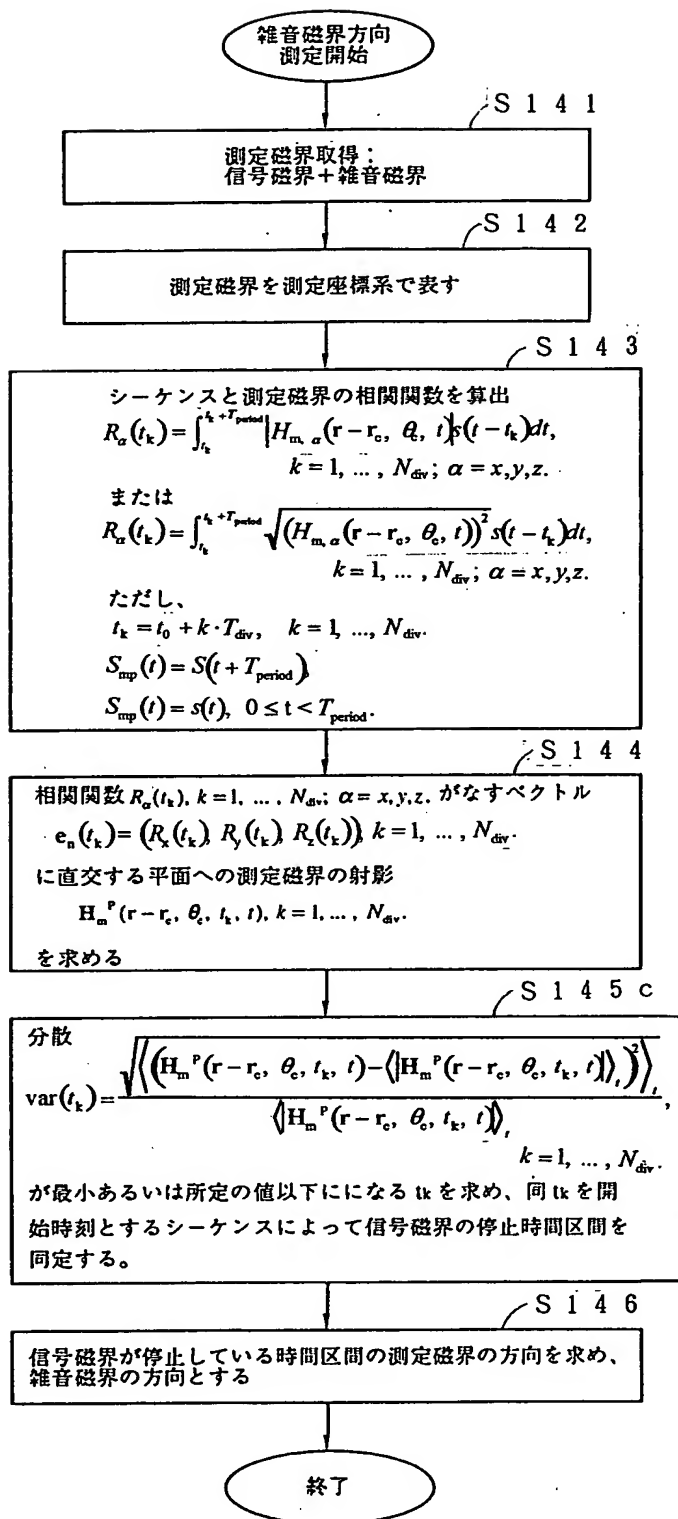 雑音磁界方向
測定開始
S141
測定磁界取得:
信号磁界+雑音磁界
S142
測定磁界を測定座標系で表す
S143
シーケンスと測定磁界の相関関数を算出
R_α(t_k)=∫_{t_k}^{t_k+T_period}|H_{m, α}(r−r_c, θ_c, t)|s(t−t_k)dt,
k=1, ..., N_div; α=x,y,z.
または
R_α(t_k)=∫_{t_k}^{t_k+T_period}√(H_{m, α}(r−r_c, θ_c, t))²s(t−t_k)dt,
k=1, ..., N_div; α=x,y,z.
ただし、
t_k=t_0+k·T_div, k=1, ..., N_div.
S_mp(t)=S(t+T_period),
S_mp(t)=s(t), 0≤t<T_period.
S144
相関関数 R_α(t_k), k=1, ..., N_div; α=x,y,z. がなすベクトル
e_n(t_k)=(R_x(t_k), R_y(t_k), R_z(t_k)), k=1, ..., N_div.
に直交する平面への測定磁界の射影
H_m^P(r−r_c, θ_c, t_k, t), k=1, ..., N_div.
を求める
S145c
分散
var(t_k)=√⟨(H_m^P(r−r_c, θ_c, t_k, t)−⟨|H_m^P(r−r_c, θ_c, t_k, t)|⟩_t)²⟩_t / ⟨|H_m^P(r−r_c, θ_c, t_k, t)|⟩_t,
k=1, ..., N_div.
が最小あるいは所定の値以下にになる tk を求め、同 tk を開
始時刻とするシーケンスによって信号磁界の停止時間区間を
同定する。
S146
信号磁界が停止している時間区間の測定磁界の方向を求め、
雑音磁界の方向とする
終了